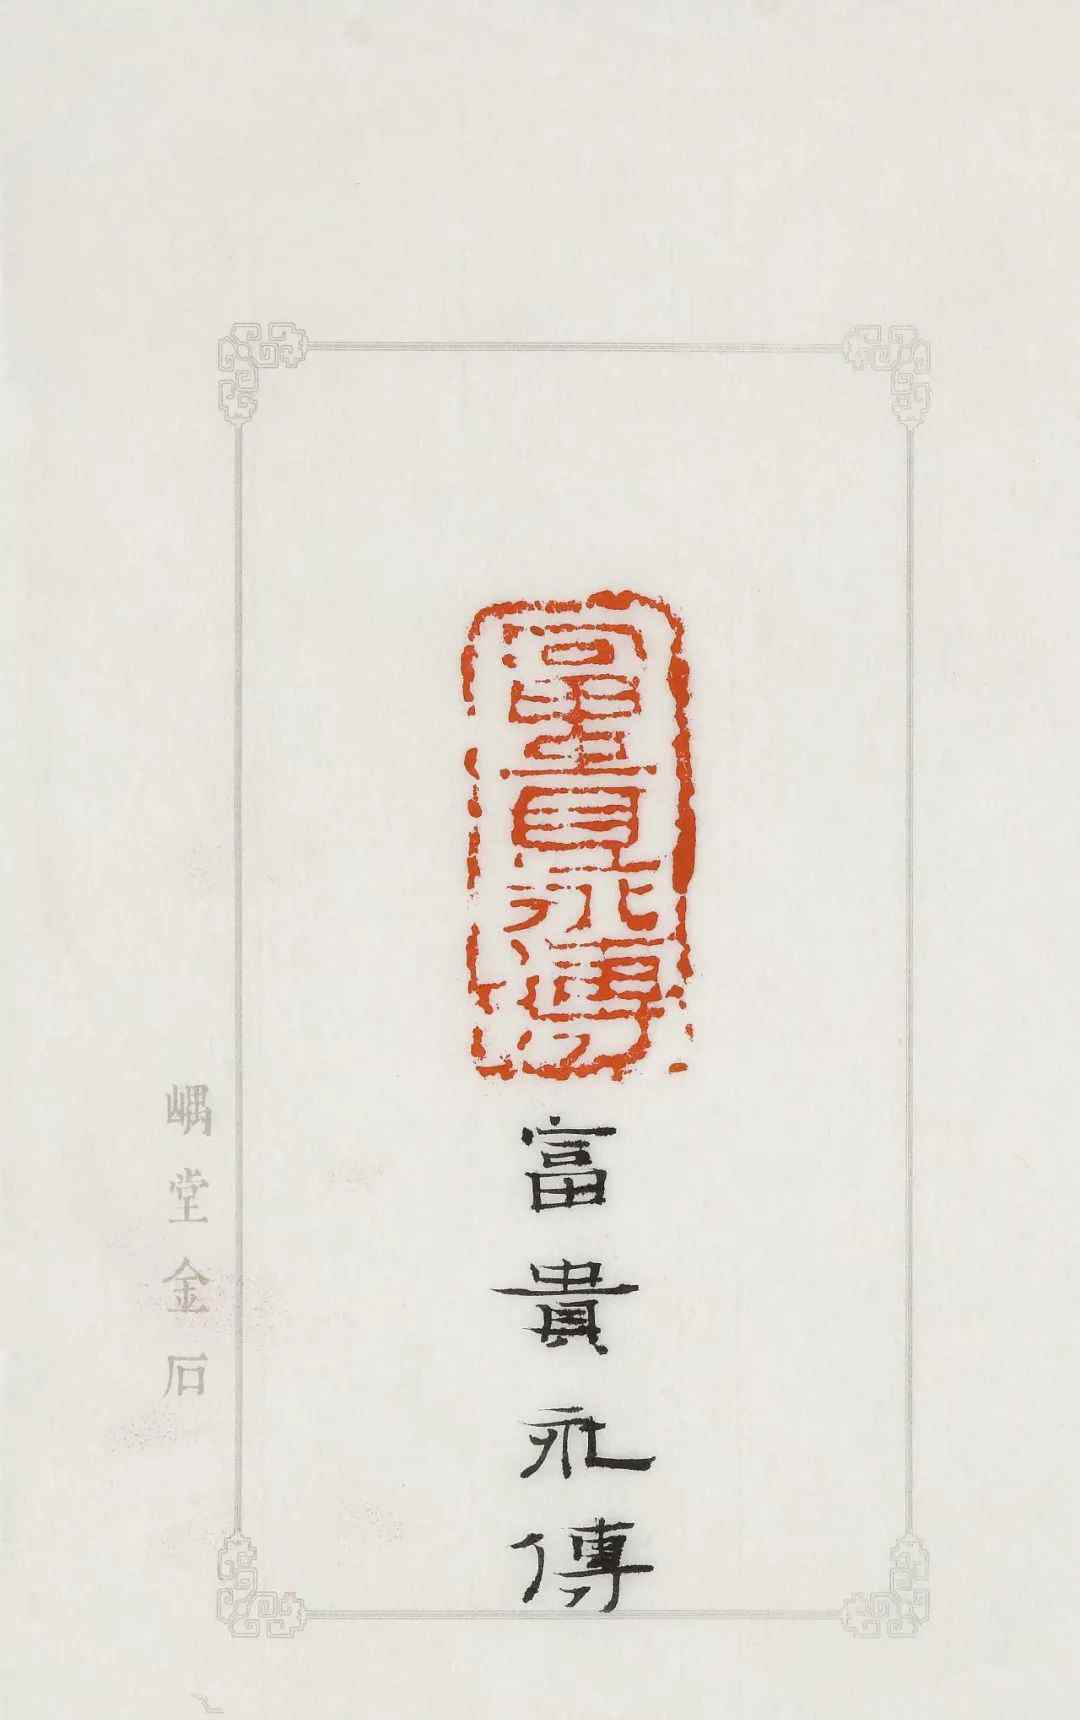 富貴永傳
富貴永傳
嵎堂金石